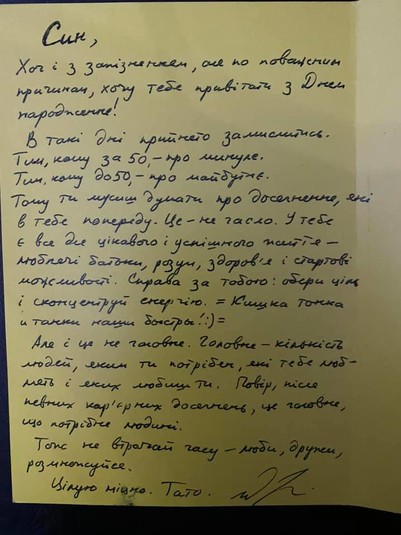 Син,
Хоч і з запізненням, але по поважним
причинам, хочу тебе привітати з Днем
народження!
В такі дні прийнято замислитись.
Тим, кому за 50, – про минуле.
Тим, кому до 50, – про майбутнє.
Тому ти мусиш думати про досягнення, які
в тебе попереду. Це – не гасло. У тебе
є все для цікавого і успішного життя –
люблячі батьки, розум, здоров'я і стартові
можливості. Справа за тобою: обери ціль
і сконцентруй енергію. = Кишка тонка
и танки наши быстры! :) =
Але і це не головне. Головне – кількість
людей, яким ти потрібен, які тебе люб-
лять і яких любиш ти. Повір, після
певних кар'єрних досягнень, це головне,
що потрібно людині.
Тож не втрачай часу – люби, дружи,
розмножуйся.
Цілую міцно. Тато.